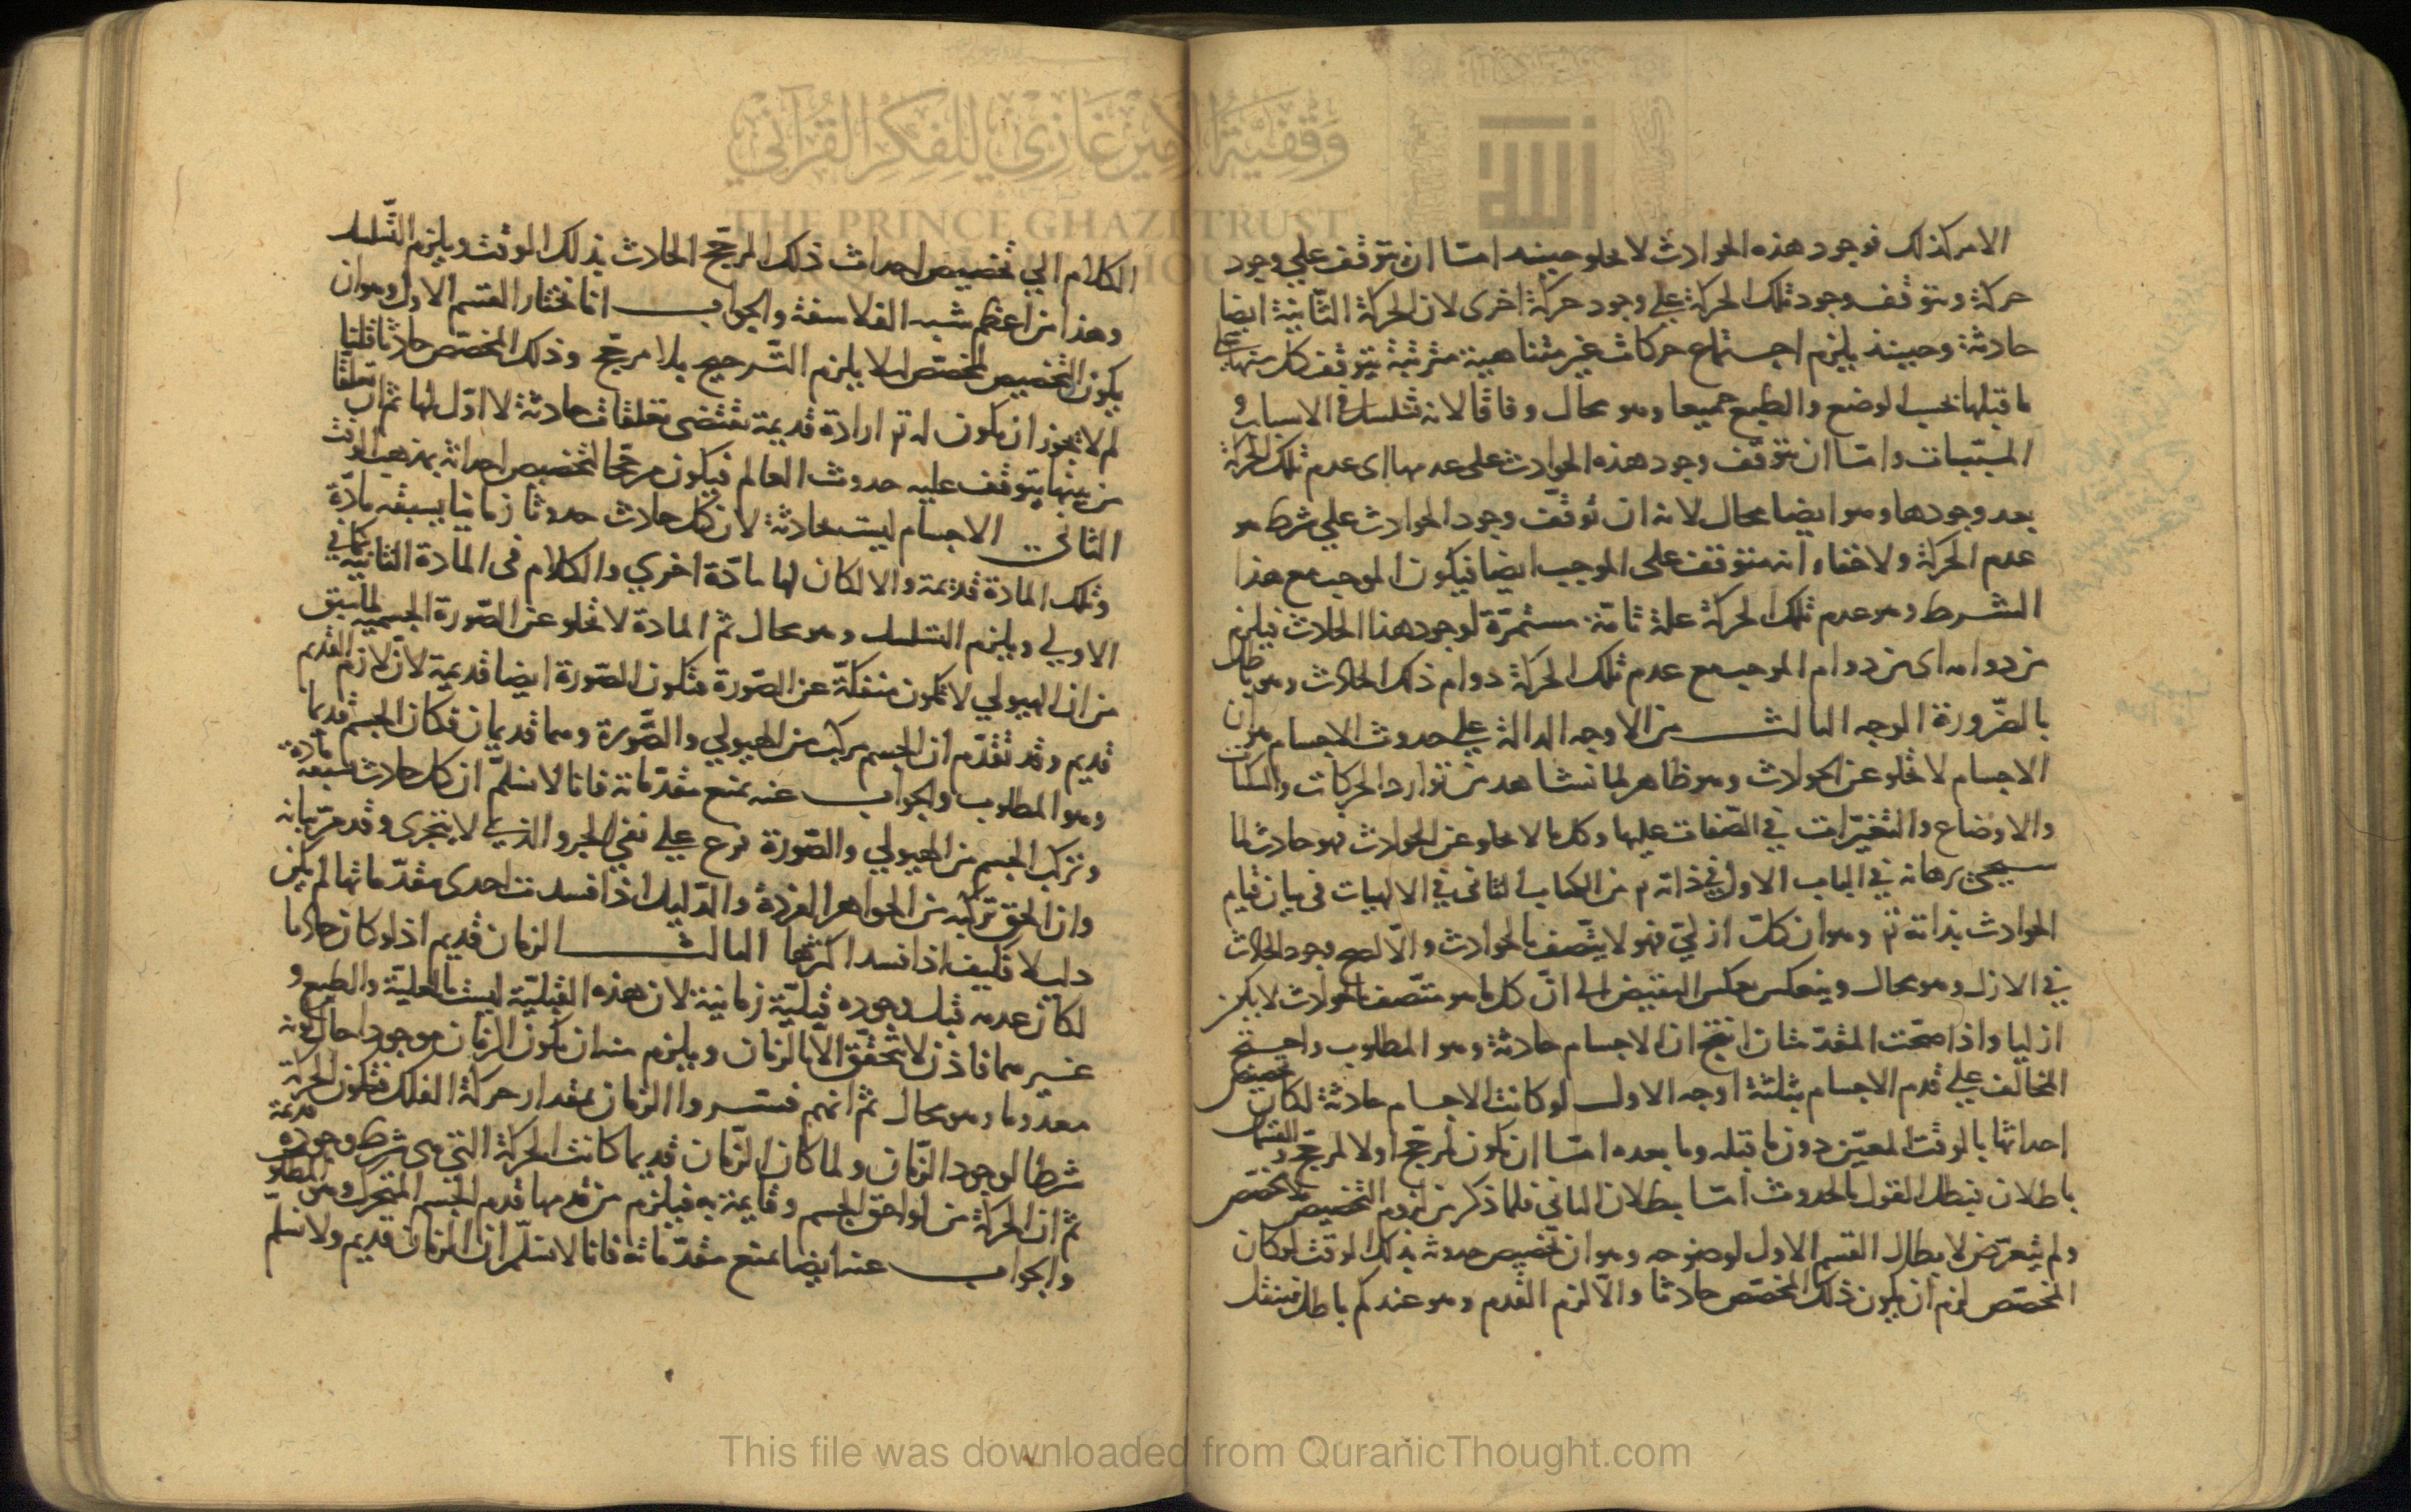 الامر كذلك فوجود هذه الحوادث لا يخلو حينئذ امّا ان يتوقف على وجود
حركة ويتوقف وجود تلك الحركة على وجود حركة اخرى لان الحركة الثّانية ايضا
حادثة وحينئذ يلزم اجتماع حركات غير متناهية مترتبة يتوقف كل منها على
ما قبلها بحسب الوضع والطبع جميعا وهو محال وفاقا لانه تسلسل في الاسباب و
المسبّبات وامّا ان يتوقف وجود هذه الحوادث على عدمها اى عدم تلك الحركة
بعد وجودها وهو ايضا محال لانه ان توقّف وجود الحوادث على شرط هو
عدم الحركة ولا خفاء انه متوقف على الموجب ايضا فيكون الموجب مع هذا
الشرط وهو عدم تلك الحركة علة تامّة مستمرّة لوجود هذا الحادث فيلزم
من دوامه اى من دوام الموجب مع عدم تلك الحركة دوام ذلك الحادث وهو باطل
بالضّرورة الوجه الثالث من الاوجه الدالة على حدوث الاجسام هو ان
الاجسام لا تخلو عن الحوادث وهو ظاهر لما نشاهد من توارد الحركات والسكنات
والاوضاع والتغيّرات في الصّفات عليها وكل ما لا يخلو عن الحوادث فهو حادث لما
سيجئ برهانه في الباب الاول في ذاته تم من الكتاب الثانى في الالهيات فى بيان قيام
الحوادث بذاته تم وهو ان كلّ ازلىّ فهو لا يتّصف بالحوادث والّا لصح وجود الحادث
في الازل وهو محال وينعكس بعكس النقيض الى انّ كل ما هو متّصف بالحوادث لا يكون
ازليا واذا صحّت المقدّمتان انتج ان الاجسام حادثة وهو المطلوب واحتج
المخالف على قدم الاجسام بثلثة اوجه الاول لو كانت الاجسام حادثة لكان تخصيص
احداثها بالوقت المعيّن دون ما قبله وما بعده امّا ان يكون لمرجّح او لا لمرجّح والقسمان
باطلان فبطل القول بالحدوث امّا بطلان الثانى فلما ذكر من لزوم التخصيص بلا مخصّص
ولم يتعرّض لابطال القسم الاول لوضوحه وهو ان تخصيص حدوثه بذلك الوقت لو كان
لمخصّص لزم ان يكون ذلك المخصّص حادثا والّا لزم القدم وهو عندكم باطل فننقل
الكلام الي تخصيص احداث ذلك المرجّح الحادث بذلك الوقت ويلزم التّسلسل
وهذا من اعظم شبه الفلاسفة والجواب انا نختار القسم الاول وهو ان
يكون التخصيص لمخصّص لئلا يلزم التّرجيح بلا مرجّح وذلك المخصّص حادث قلنا
لم لا يجوز ان يكون له تم ارادة قديمة تقتضى تعلقات حادثة لا اوّل لها ثم انّ تعلقا
من بينها يتوقف عليه حدوث العالم فيكون مرجّحا لتخصيص احداثه بهذه الوقت
الثانى الاجسام ليست حادثة لان كل حادث حدوثا زمانيا يسبقه مادّة
وتلك المادة قديمة والا لكان لها مادّة اخري والكلام فى المادة الثانية كما في
الاولي ويلزم التسلسل وهو محال ثم المادة لا تخلو عن الصّورة الجسمية لما سبق
من ان الهيولي لا تكون منفكّة عن الصّورة فتكون الصّورة ايضا قديمة لانّ لازم القديم
قديم وقد تقدّم ان الجسم مركب من الهيولي والصّورة وهما قديمان فكان الجسم قديما
وهو المطلوب والجواب عنه بمنع مقدّماته فانا لا نسلّم ان كل حادث تسبقه مادّة
وتركب الجسم من الهيولي والصّورة فرع على نفي الجزء الذي لا يتجزى وقد مرّ بيانه
وان الحق تركّبه من الجواهر الفردة والدّليل اذا فسدت احدى مقدّماتها لم يكن
دليلا فكيف اذا فسد اكثرها الثالث الزمان قديم اذ لو كان حادثا
لكان عدمه قبل وجوده قبليّة زمانية لان هذه القبليّة ليست بالعليّة والطبع و
غيرهما فاذن لا تتحقّق الّا بالزمان ويلزم منه ان يكون الزمان موجودا حال كونه
معدوما وهو محال ثم انهم فسّروا الزمان بمقدار حركة الفلك فتكون الحركة
شرطا لوجود الزّمان ولما كان الزّمان قديما كانت الحركة التى هى شرط وجوده قديمة
ثم ان الحركة من لواحق الجسم وقايمة به فيلزم من قدمها قدم الجسم المتحرك وهو المطلوب
والجواب عنه ايضا بمنع مقدّماته فانا لا نسلّم ان الزمان قديم ولا نسلّم
وقفية الأمير غازي للفكر القرآني
THE PRINCE GHAZI TRUST
This file was downloaded from QuranicThought.com